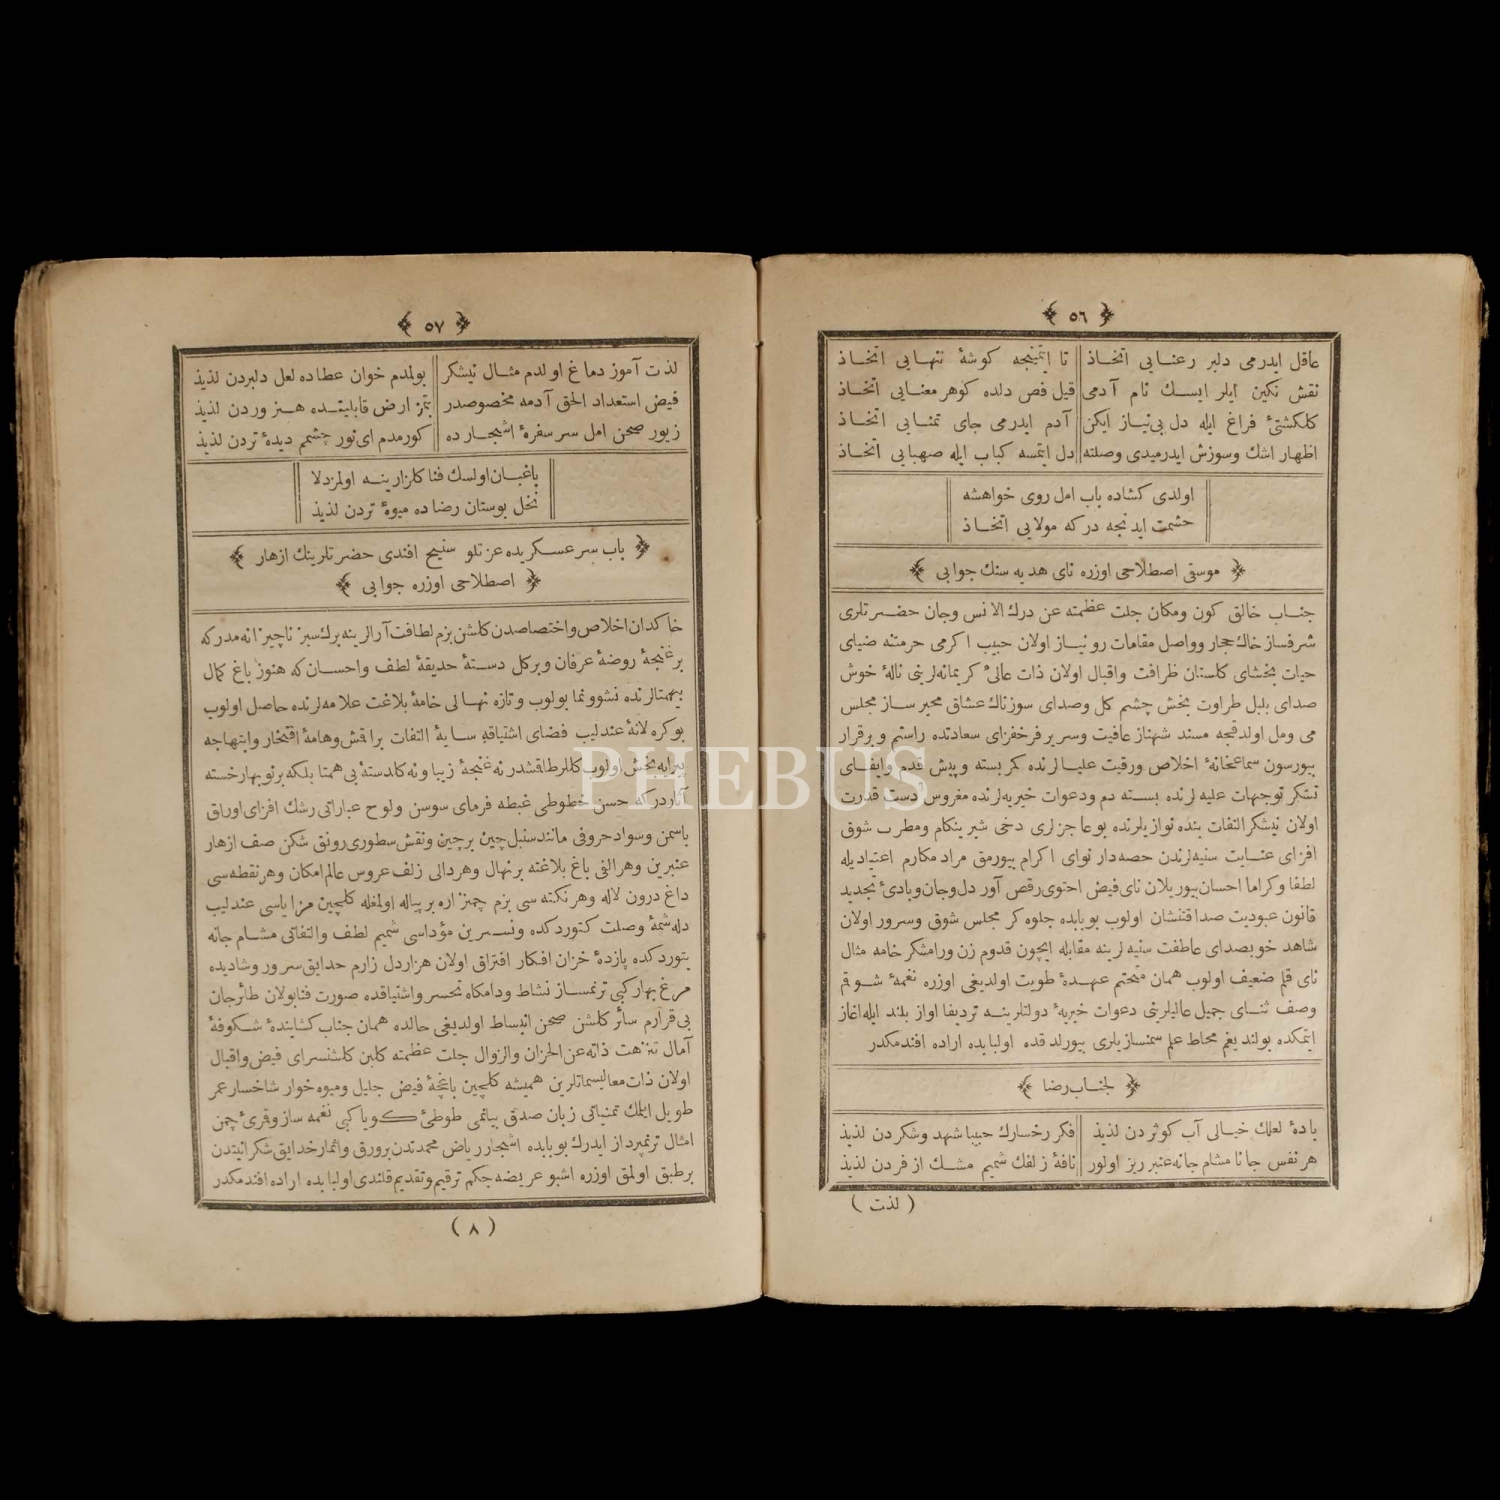 ٥٦
عاقل ايدرمى دلبر رعنايى اتخاذ تا ايتمينجه كوشۀ تنهايى اتخاذ
نقش نكين ايلر ايسك نام آدمى قيل فص دلده كوهر معنايى اتخاذ
كلكشتئ فراغ ايله دل بى نياز ايكن آدم ايدرمى جاى تمنايى اتخاذ
اظهار اشك وسوزش ايدرميدى وصلته دل ايتمسه كباب ايله صهبايى اتخاذ
اولدى كشاده باب امل روى خواهشه
حشمت ايدنجه دركه مولايى اتخاذ
موسقى اصطلاحى اوزره ناى هديه سنك جوابى
جناب خالق كون ومكان جلت عظمته عن درك الانس وجان حضرتلرى
شرفساز خاك حجاز وواصل مقامات رو نياز اولان حبيب اكرمى حرمتنه ضياى
حيات بخشاى كلستان ظرافت واقبال اولان ذات عالئ كريمانه لرينى نالۀ خوش
صداى بلبل طراوت بخش چشم كل وصداى سوزناك عشاق محير ساز مجلس
مى ومل اولدقجه مسند شهناز عافيت وسرير فرحفزاى سعادتده راستم وبرقرار
بيورسون سماعخانۀ اخلاص ورقيت عليالرنده كمر بسته وپيش قدم وايفاى
تشكر توجهات عليه لرنده بسته دم ودعوات خيريه لرنده مغروس دست قدرت
اولان نيشكر التفات بنده نوازيلرنده بو عاجزلرى دخى شيرينكام ومطرب شوق
افزاى عنايت سنيه لرندن حصه دار نواى اكرام بيورمق مراد مكارم اعتياديله
لطفا وكراما احسان بيوريلان ناى فيض احتوى رقص آور دل وجان وبادئ تجديد
قانون عبوديت صداقتنشان اولوب بوبابده جلوه كر مجلس شوق وسرور اولان
شاهد خوبصداى عاطفت سنيه لرينه مقابله ايچون قدوم زن ورامشكر خامه مثال
ناى قلم ضعيف اولوب همان متحتم عهدۀ طويت اولديغى اوزره نغمۀ شوقم
وصف ثناى جميل عاليلرينى دعوات خيريۀ دولتلرينه ترديفا اواز بلند ايله اغاز
ايتمكده بولنديغم محاط علم سمنسازيلرى بيورلدقده اولبابده اراده افندمكدر
لجناب رضا
بادۀ لعلك خيالى آب كوثردن لذيذ فكر رخسارك حبيبا شهد وشكردن لذيذ
هر نفس جانا مشام جانه عنبر ريز اولور نافۀ زلفك شميم مشك ازفردن لذيذ
( لذت )
٥٧
لذت آموز دماغ اولدم مثال نيشكر بولمدم خوان عطاده لعل دلبردن لذيذ
فيض استعداد الحق آدمه مخصوصدر بتمز ارض قابليتده هنروردن لذيذ
زيور صحن امل سر سفرۀ اشجارده كورمدم اى نور چشمم ديدۀ تردن لذيذ
باغبان اولسك فنا كلزارينه اولمز دلا
نخل بوستان رضاده ميوۀ تردن لذيذ
باب سر عسكريده عزتلو سنيح افندى حضرتلرينك ازهار
اصطلاحى اوزره جوابى
خاكدان اخلاص واختصاصدن كلشن بزم لطافت آرالرينه برك سبز ناچيزانه مدركه
بر غنچۀ روضۀ عرفان وبركل دستۀ حديقۀ لطف واحسان كه هنوز باغ كمال
بيهمتالرنده نشوونما بولوب وتازه نهالى خامۀ بلاغت علامه لرنده حاصل اولوب
بوكره لانۀ عندليب فضاى اشتياقه سايۀ التفات براقش وهامۀ افتخار وابتهاجه
پيرايه بخش اولوب كللر طاقشدر نه غنچۀ زيبا ونه كلدستۀ بى همتا بلكه بر نوبهار خسته
آثاردركه حسن خطوطى غبطه فرماى سوسن ولوح عباراتى رشك افزاى اوراق
ياسمن وسواد حروفى مانند سنبل چين برچين ونقش سطورى رونق شكن صف ازهار
عنبرين وهر الفى باغ بلاغته بر نهال وهر دالى زلف عروس عالم امكان وهر نقطه سى
داغ درون لاله وهر نكته سى بزم چمنزاره بر پياله اولمغله كلچين مزاياسى عندليب
دله شمۀ وصلت كتوردكده ونسرين مؤداسى شميم لطف والتفاتى مشام جانه
يتوردكده پازدۀ خزان افكار افتراق اولان هزار دل زارم حدايق سرور وشاديده
مرغ بهار كبى ترنمساز نشاط ودامكاه تحسر واشتياقده صورت فنا بولان طائر جان
بى قرارم سائر كلشن صحن انبساط اولديغى حالده همان جناب كشايندۀ شكوفۀ
آمال تنزهت ذاته عن الحزان والزوال جلت عظمته كلبن كلشنسراى فيض واقبال
اولان ذات معاليسماتلرين هميشه كلچين باغچۀ فيض جليل وميوه خوار شاخسار عمر
طويل ايلمك تمنياتى زبان صدق بياتمى طوطئ كويا كبى نغمه ساز وقرئ چمن
امثال ترنمپرداز ايدرك بوبابده اشجار رياض محمدتدن برورق واثمار حدايق شكرانيتدن
برطبق اولمق اوزره اشبو عريضه چكم ترقيم وتقديم قلندى اولبابده اراده افندمكدر
( ٨ )
PHEBUS